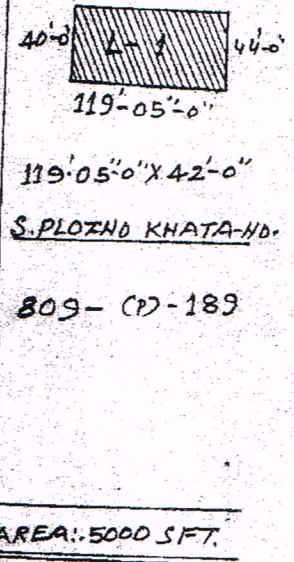 40'-0" L-1 44'-0"
119'-05"-0"
119'05"0"X42'-0"
S.PLOTNO KHATA-NO.
809- (P)-189
AREA:.5000 SFT.